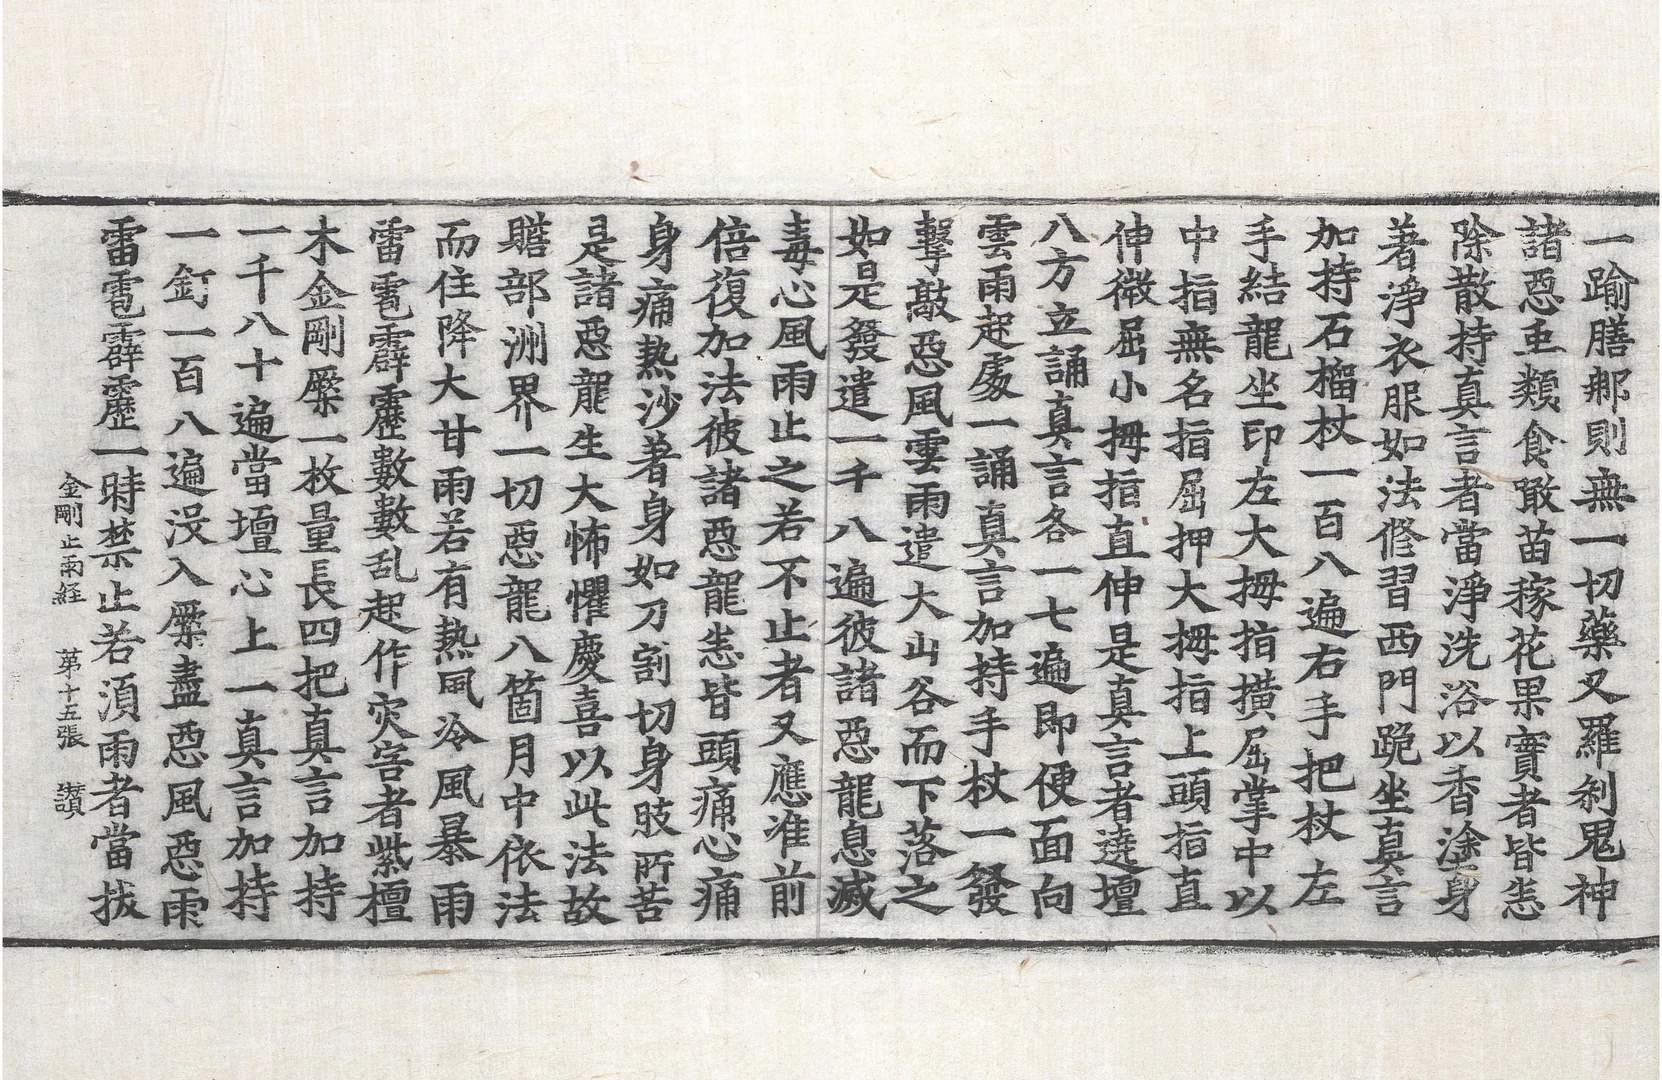 一踰膳那則無一切藥叉羅刹鬼神
諸惡虫類食噉苗稼花果實者皆悉
除散持真言者當淨洗浴以香塗身
著淨衣服如法修習西門跪坐真言
加持石榴杖一百八遍右手把杖左
手結龍坐印左大拇指撗屈掌中以
中指無名指屈押大拇指上頭指直
伸微屈小拇指直伸是真言者遶壇
八方立誦真言各一七遍即便面向
雲雨起處一誦真言加持手杖一發
擊敲惡風雲雨遣大山谷而下落之
如是發遣一千八遍彼諸惡龍息滅
毒心風雨止之若不止者又應准前
倍復加法彼諸惡龍悉皆頭痛心痛
身痛熱沙著身如刀割切身肢所苦
是諸惡龍生大怖懼慶喜以此法故
贍部洲界一切惡龍八箇月中依法
而住降大甘雨若有熱風冷風暴雨
雷雹霹靂數數乱起作灾害者紫檀
木金剛橛一枚量長四把真言加持
一千八十遍當壇心上一真言加持
一釘一百八遍没入橛盡惡風惡雨
雷雹霹靂一時禁止若湏雨者當拔
金剛止雨経　第十五張　讃